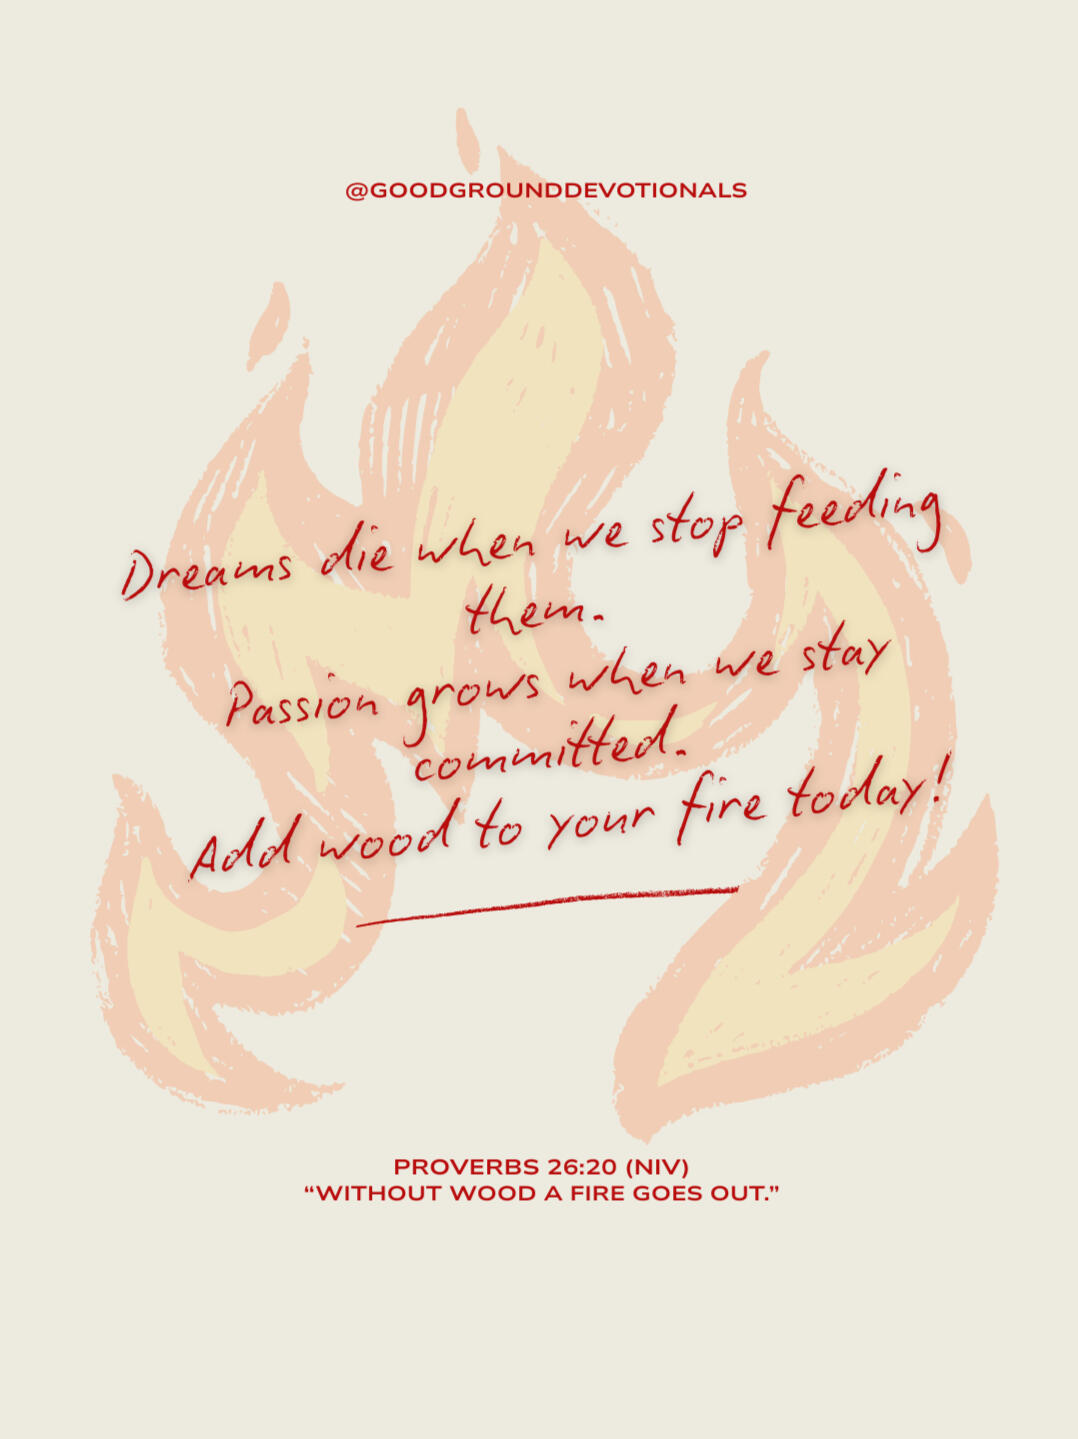 @GOODGROUNDDEVOTIONALS
Dreams die when we stop feeding
them.
Passion grows when we stay
committed.
Add wood to your fire today!
PROVERBS 26:20 (NIV)
“WITHOUT WOOD A FIRE GOES OUT.”